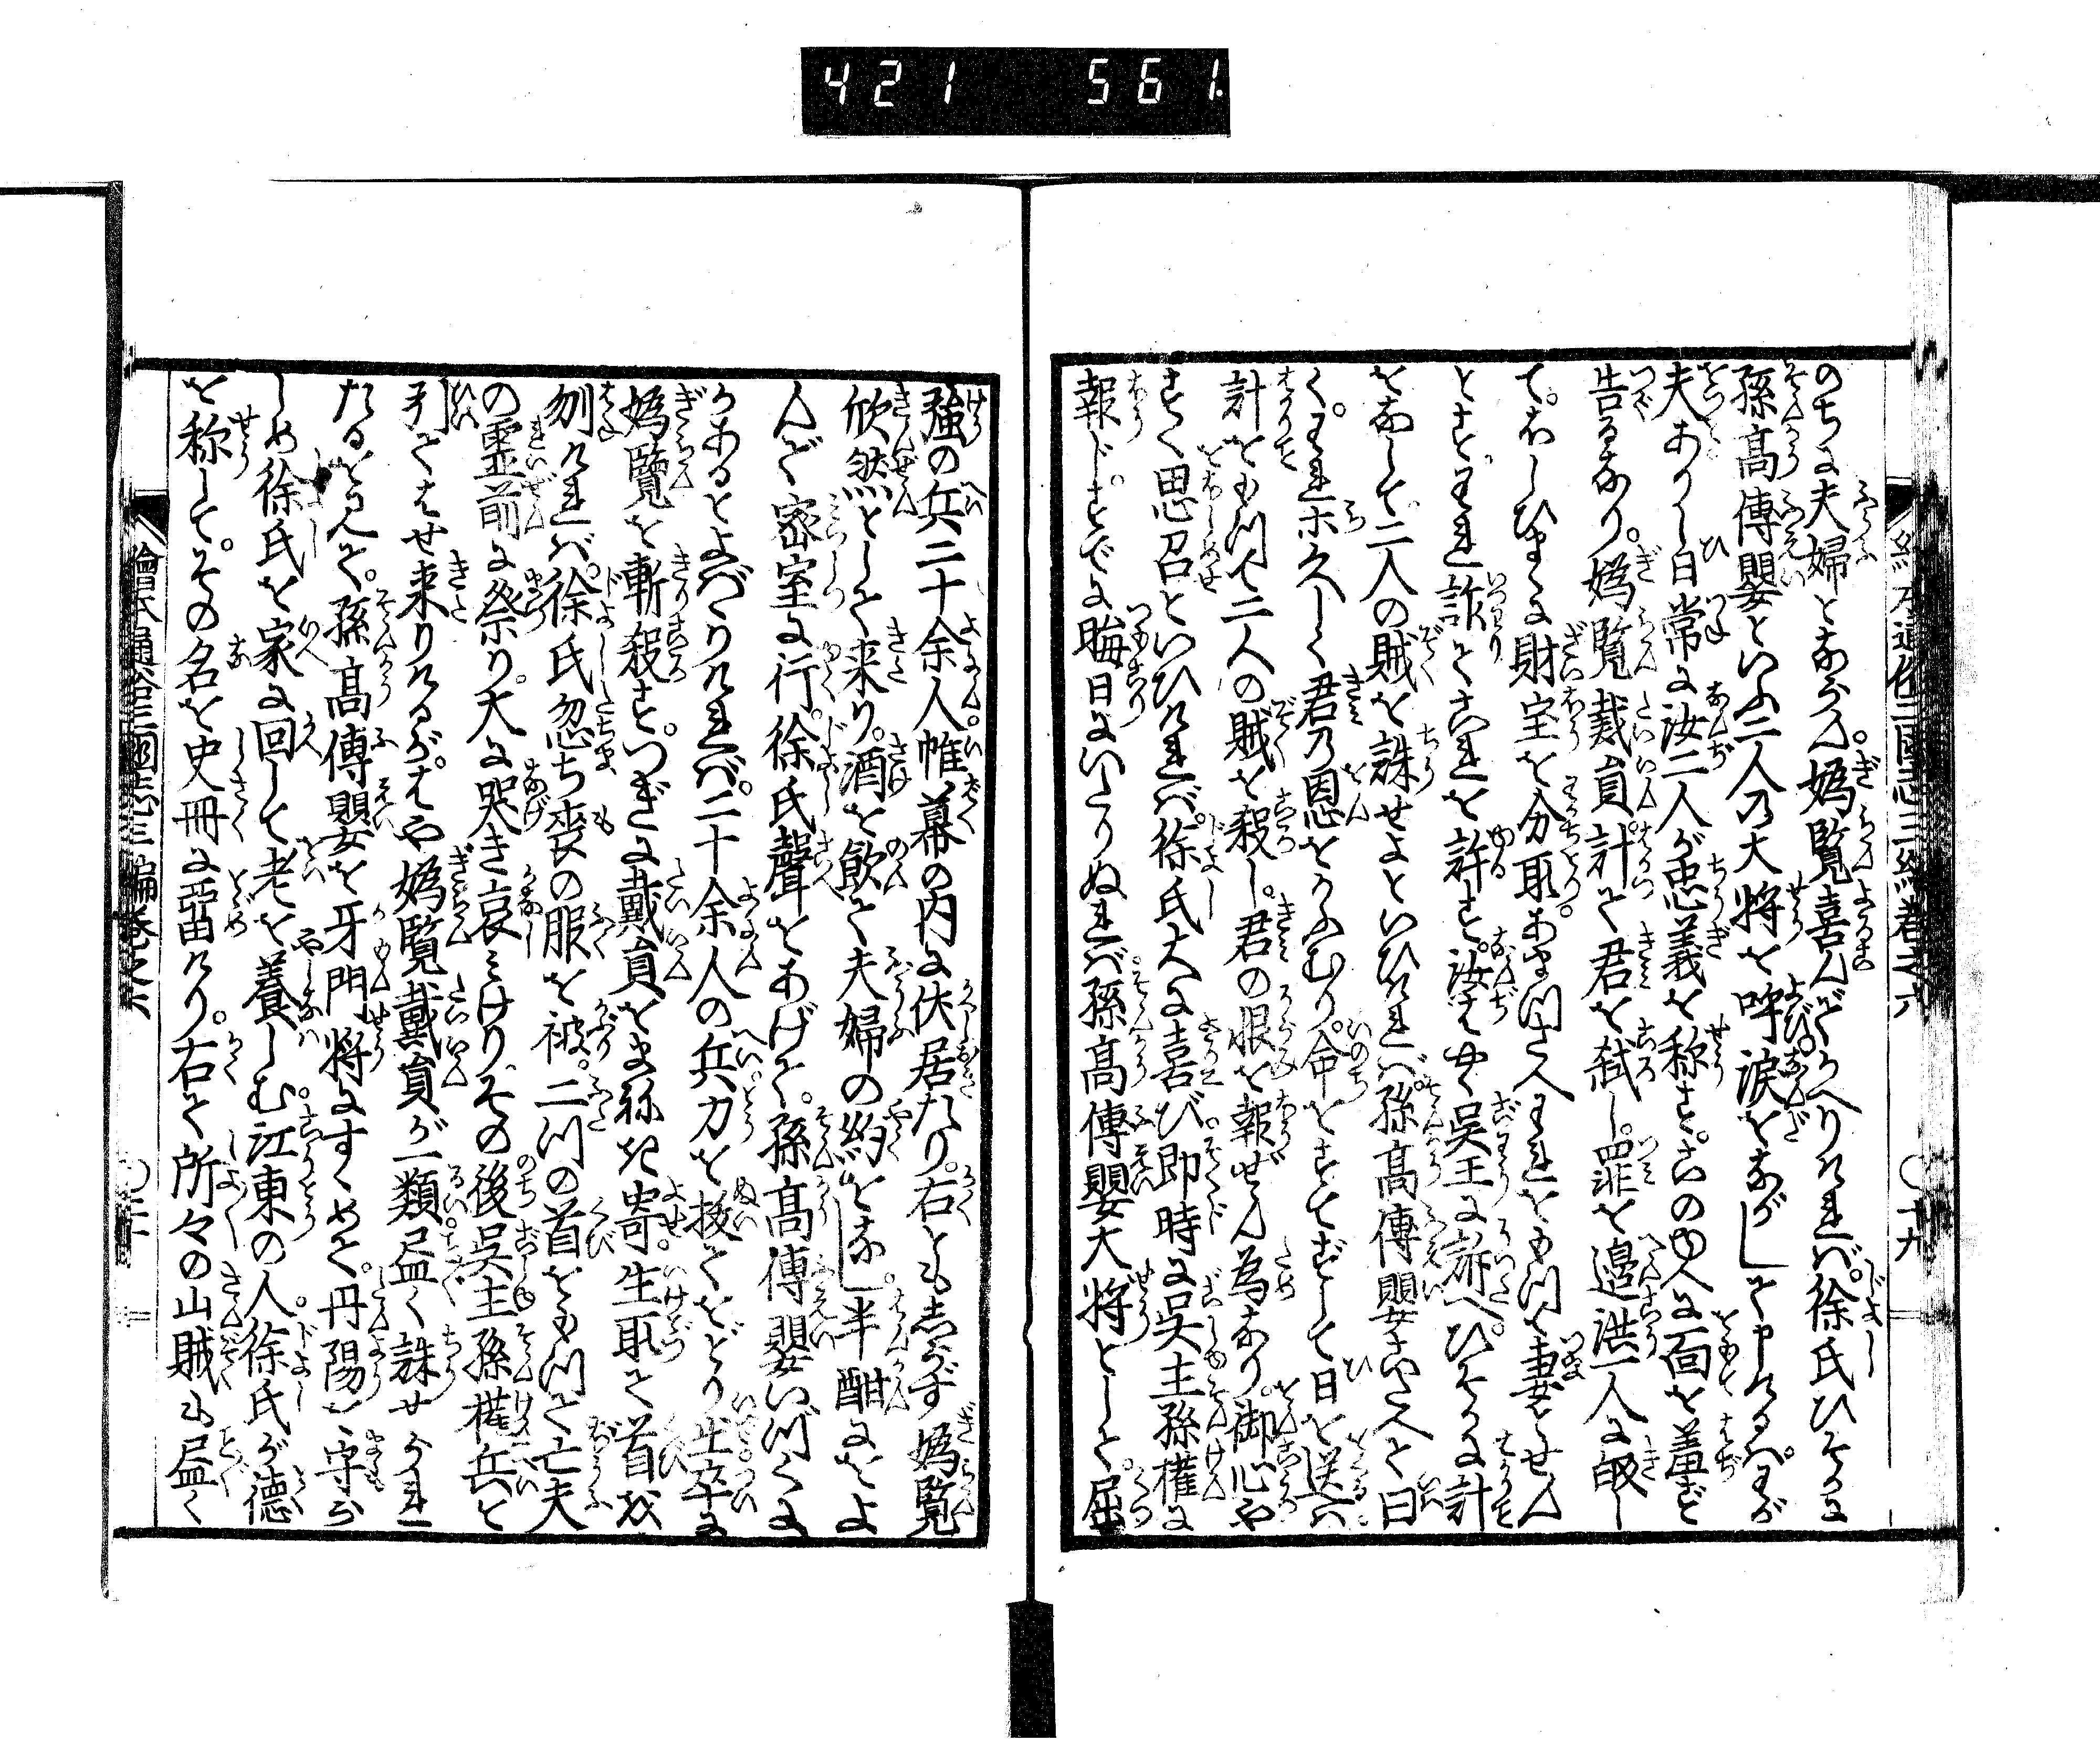 421 561
のちに夫婦とならん。嬀覧喜んでかへりければ。徐氏ひそかに
孫高傅嬰といふ二人の大将を呼。涙をながして申けるハ。わが
夫ありし日常に汝二人が忠義を称す。このゆへに面を羞ず
告るなり。嬀覧戴員計て君を弑し。罪を邉洪一人に皈し
て。わしひまに財宝を分取。あまつさへわれをもつて妻とせん
とす。われ詐てこれを許す。汝はやく呉王に訴へ。ひそかに計
をなして。二人の賊を誅せよといひければ。孫高傅嬰こたへて曰
く。われホ久しく君の恩をかふむり。命をすてずして日を送ハ
計をもつて二人の賊を殺し。君の恨を報ぜん為なり。御心や
すく思召といひければ徐氏大に喜び。即時に呉主孫權に
報じ。すでに晦日にいたりぬれバ。孫高傅嬰大将として。屈
強の兵二十余人。帷幕の内に伏居たり。右ともしらず嬀覧
欣然として来り。酒を飲て夫婦の約をなし。半酣にをよ
んで密室に行。徐氏聲をあげて。孫高傅嬰いづくに
かあるとよばゝりければ。二十余人の兵力を抜てをどり出。卒に
嬀覧を斬殺す。つぎに戴員をまねき寄。生取て首を
刎ければ。徐氏忽ち喪の服を被。二つの首をもつて亡夫
の靈前に祭り。大に哭き哀みけり。その後呉主孫權兵を
引てはせ来りけるが。はや嬀覧戴員が一類尽く誅せられ
たるをみて。孫高傅嬰を牙門将にすゝめて。丹陽を守ら
しめ徐氏を家に回して老を養しむ。江東の人。徐氏が徳
を称して。その名を史冊に畱けり。右て所々の山賊も尽く
繪本通俗三國志三編巻之六 〇二十
繪本通俗三國志三編巻之六 〇十九